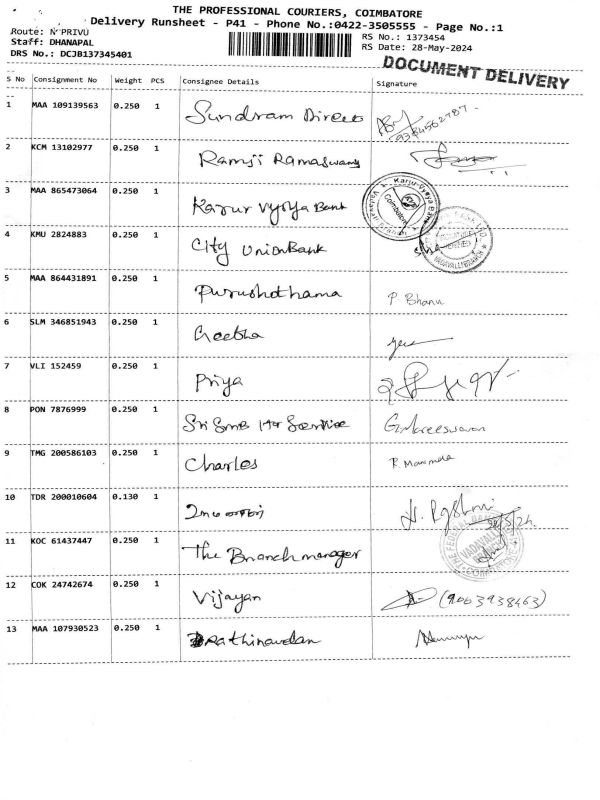 THE PROFESSIONAL COURIERS, COIMBATORE
Delivery Runsheet - P41 - Phone No.:0422-3505555 - Page No.:1
Route: N PRIVU
Staff: DHANAPAL
DRS No.: DCJB137345401
RS No.: 1373454
RS Date: 28-May-2024
DOCUMENT DELIVERY
S No Consignment No Weight PCS Consignee Details Signature
1 MAA 109139563 0.250 1 Sundram Direct
2 KCM 13102977 0.250 1 Ramji Ramaswamy
3 MAA 865473064 0.250 1 Karur Vysya Bank
4 KMU 2824883 0.250 1 City Union Bank
5 MAA 864431891 0.250 1 Purushothama P Bhanu
6 SLM 346851943 0.250 1 Geetha
7 VLI 152459 0.250 1 Priya
8 PON 7876999 0.250 1 Sri
9 TMG 200586103 0.250 1 Charles
10 TDR 200010604 0.130 1
11 KOC 61437447 0.250 1 The Branch manager
12 COK 24742674 0.250 1 Vijayan (9003938463)
13 MAA 107930523 0.250 1 Rathinavelan